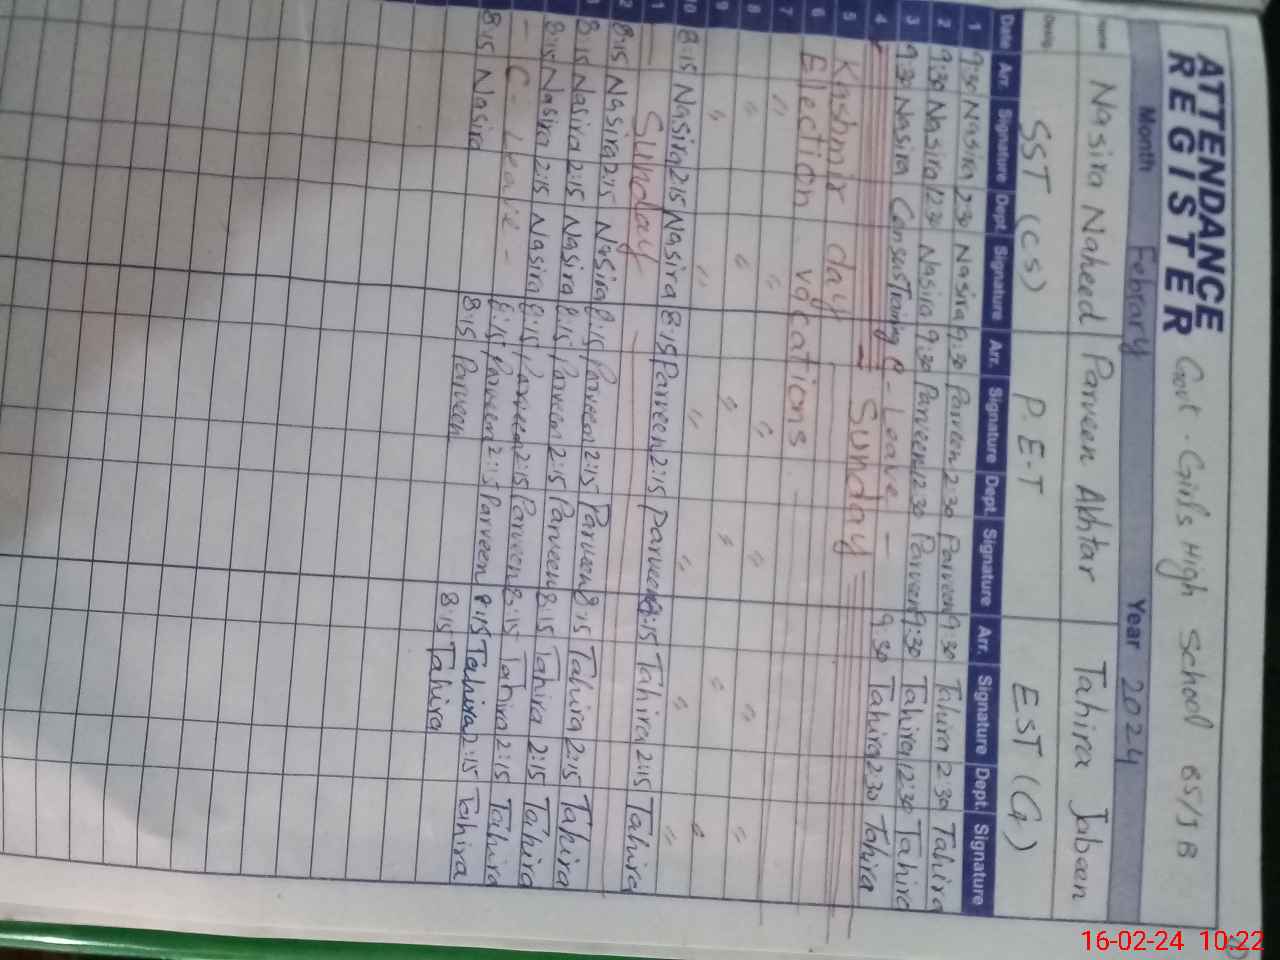 ATTENDANCE REGISTER Govt. Girls High School 85/1B
Month Febrary Year 2024
Name Nasira Naheed Parveen Akhtar Tahira Jabeen
Desig. SST (CS) P.E.T EST (G)
Date Arr. Signature Dept. Signature Arr. Signature Dept. Signature Arr. Signature Dept. Signature
1 9:30 Nasira 2:30 Nasira 9:30 Parveen 2:30 Parveen 9:30 Tahira 2:30 Tahira
2 9:30 Nasira 12:30 Nasira 9:30 Parveen 12:30 Parveen 9:30 Tahira 12:30 Tahira
3 9:30 Nasira C-Leave - 9:30 Tahira 2:30 Tahira
4 Sunday
5 Kashmir day
6 Election vocations
7 " " " " " "
8 " " " " " "
9 " " " " " "
10 8:15 Nasira 2:15 Nasira 8:15 Parveen 2:15 Parveen 8:15 Tahira 2:15 Tahira
11 Sunday
2 8:15 Nasira 2:15 Nasira 8:15 Parveen 2:15 Parveen 8:15 Tahira 2:15 Tahira
8:15 Nasira 2:15 Nasira 8:15 Parveen 2:15 Parveen 8:15 Tahira 2:15 Tahira
8:15 Nasira 2:15 Nasira 8:15 Parveen 2:15 Parveen 8:15 Tahira 2:15 Tahira
- C-Leave - 8:15 Parveen 2:15 Parveen 8:15 Tahira 2:15 Tahira
8:15 Nasira 8:15 Parveen 8:15 Tahira
16-02-24 10:22